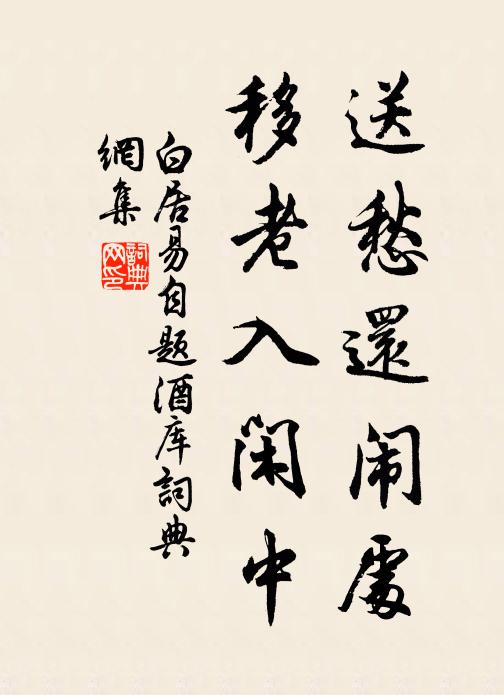 送愁還闹處
移老入闲中
白居易自题酒库詞典
網集
詞典
网印